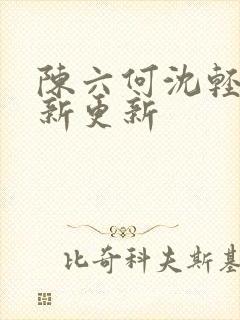 陈六何沈轻
新更新
比奇科夫斯基